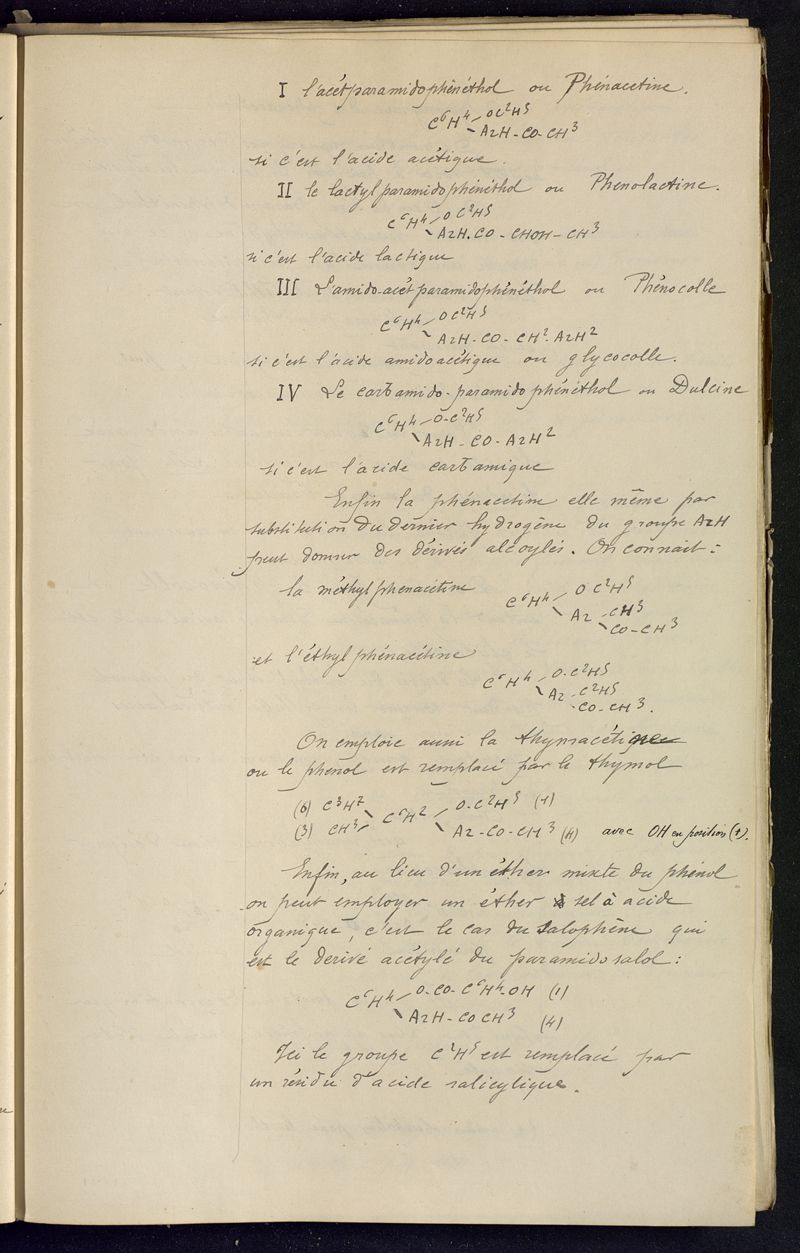 I l'acétparamidophénéthol ou Phénacetine.
C⁶H⁴ OC²H⁵
AzH-CO-CH³
si c'est l'acide acétique.
II le lactylparamidophénéthol ou Phenolactine.
C⁶H⁴ OC²H⁵
AzH.CO-CHOH-CH³
si c'est l'acide lactique
III L'amido-acét paramidophénéthol ou Phénocolle
C⁶H⁴ OC²H⁵
AzH-CO-CH²-AzH²
si c'est l'acide amidoacétique ou glycocolle.
IV Le carbamido-paramidophénéthol ou Dulcine
C⁶H⁴ O-C²H⁵
AzH-CO-AzH²
si c'est l'acide carbamique
Enfin la phénacetine elle même par
substitution du dernier hydrogène du groupe AzH
peut donner des dérivés alcoylés. On connait :
la méthylphenacétine C⁶H⁴ OC²H⁵
Az-CH³
CO-CH³
et l'éthylphénacétine C⁶H⁴ O-C²H⁵
Az-C²H⁵
CO-CH³.
On emploie aussi la thymacétine
ou le phenol est remplacé par le thymol
(6) C³H⁷ C⁶H² O-C²H⁵ (1)
(3) CH³ Az-CO-CH³ (4) avec OH en position (1).
Enfin, au lieu d'un éther mixte du phénol
on peut employer un éther sel à acide
organique, c'est le cas du Salophène qui
est le derivé acétylé du paramidosalol :
C⁶H⁴ O-CO-C⁶H⁴-OH (1)
AzH-COCH³ (4)
Ici le groupe C²H⁵ est remplacé par
un résidu d'acide salicylique.